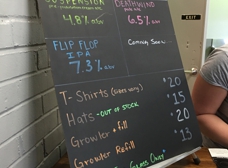 SUSPENSION
4.8% abv
DEATHWIND
6.5% abv
FLIP FLOP
IPA
7.3% abv
Coming Soon
T-Shirts (sizes vary) $20
Hats - OUT OF STOCK $15
Growler + fill $20
Growler Refill $13
Glass Only